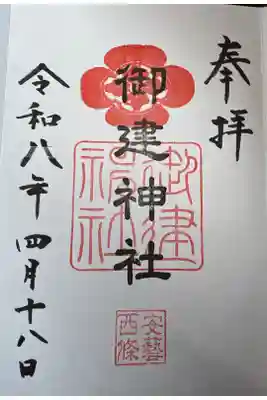 奉拝
御建神社
御建神社
安藝西條
令和八年 四月十八日